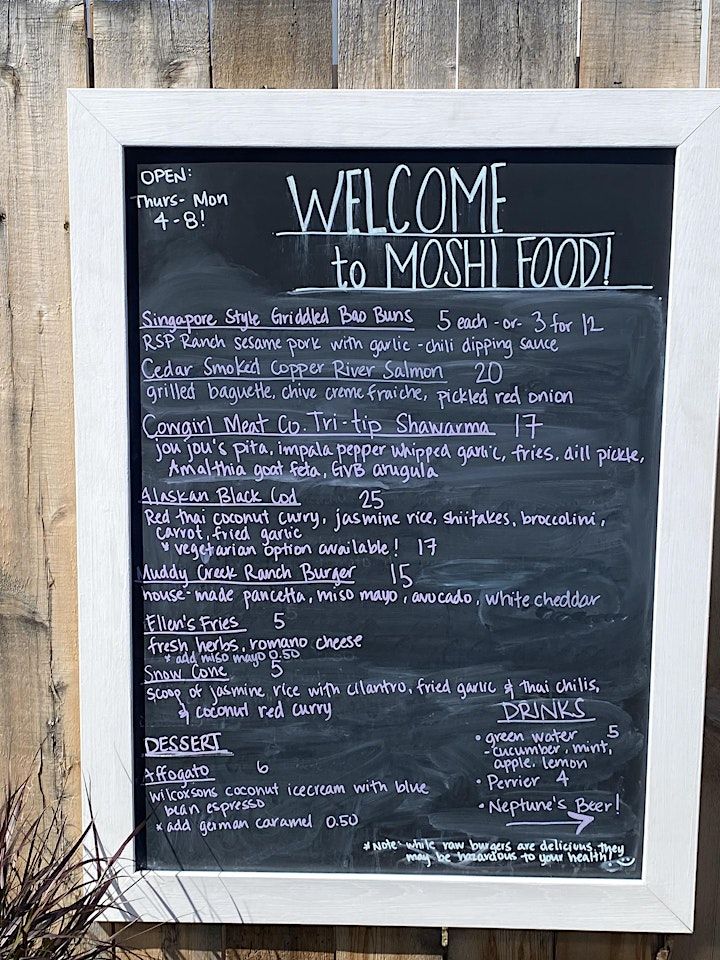 OPEN:
Thurs- Mon
4-8!
WELCOME
to MOSHI FOOD!
Singapore Style Griddled Bao Buns 5 each -or- 3 for 12
RSP Ranch sesame pork with garlic -chili dipping sauce
Cedar Smoked Copper River Salmon 20
grilled baguette, chive creme fraiche, pickled red onion
Cowgirl Meat Co. Tri-tip Shawarma 17
jou jou's pita, impala pepper whipped garlic, fries, dill pickle,
Amalthia goat feta, GVB arugula
Alaskan Black Cod 25
Red thai coconut curry, jasmine rice, shiitakes, broccolini,
carrot, fried garlic
* vegetarian option available! 17
Muddy Creek Ranch Burger 15
house-made pancetta, miso mayo, avocado, white cheddar
Ellen's Fries 5
fresh herbs, romano cheese
* add miso mayo 0.50
Snow Cone 5
scoop of jasmine rice with cilantro, fried garlic & thai chilis,
& coconut red curry
DESSERT
Affogato 6
wilcoxsons coconut icecream with blue
bean espresso
* add german caramel 0.50
DRINKS
• green water 5
-cucumber, mint,
apple, lemon
• Perrier 4
• Neptune's Beer!
*Note: while raw burgers are delicious, they
may be hazardous to your health!